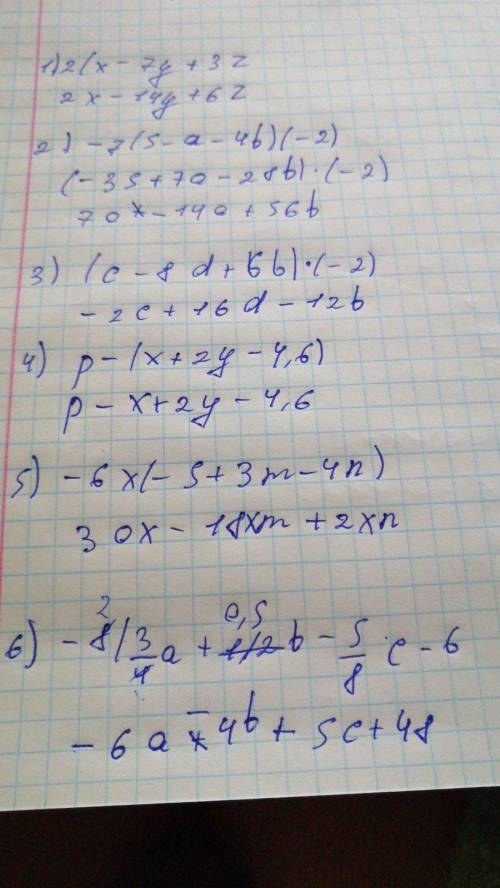 1) 2(x - 7y + 3z
2x - 14y + 6z
2) -7(5 - a - 4b)(-2)
(-35 + 7a - 28b)·(-2)
70 - 14a + 56b
3) (c - 8d + 6b)·(-2)
-2c + 16d - 12b
4) p - (x + 2y - 4,6)
p - x + 2y - 4,6
5) -6x(-5 + 3m - 4n)
30x - 18xm + 2xn
6) -8(3/4a + 0,5b - 5/8·c - 6
-6a - 4b + 5c + 48